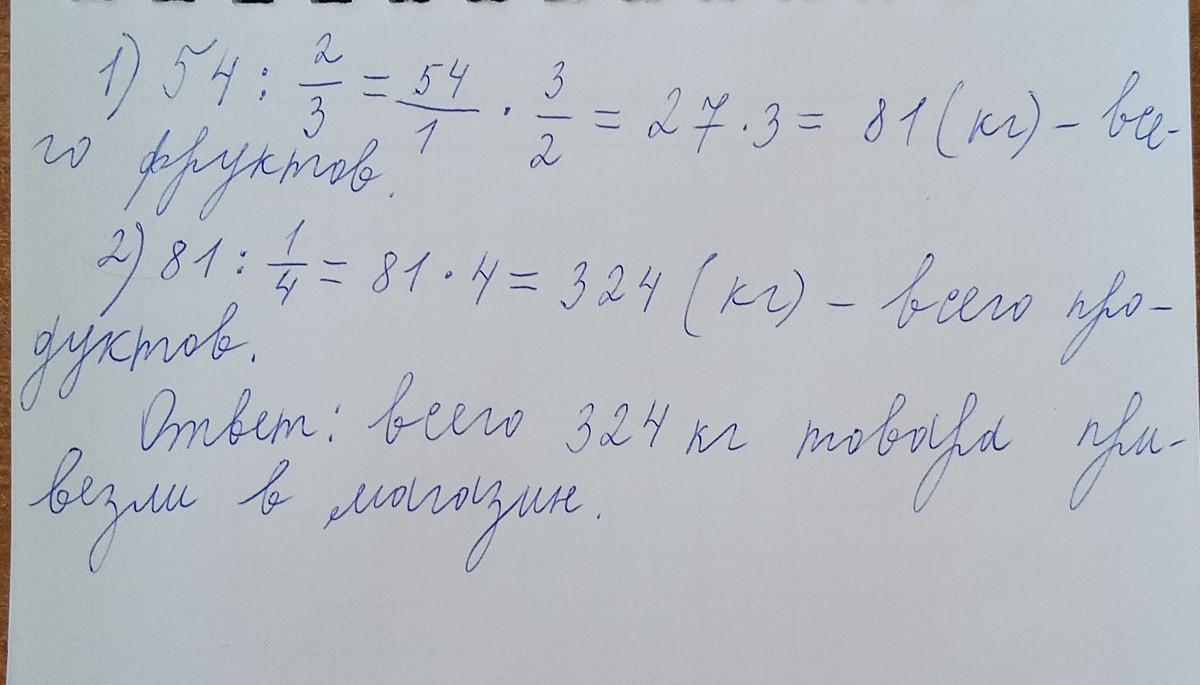 1) 54 : 2/3 = 54/1 · 3/2 = 27 · 3 = 81 (кг) – все-
го фруктов.
2) 81 : 1/4 = 81 · 4 = 324 (кг) – всего про-
дуктов.
Ответ: всего 324 кг товара при-
везли в магазин.